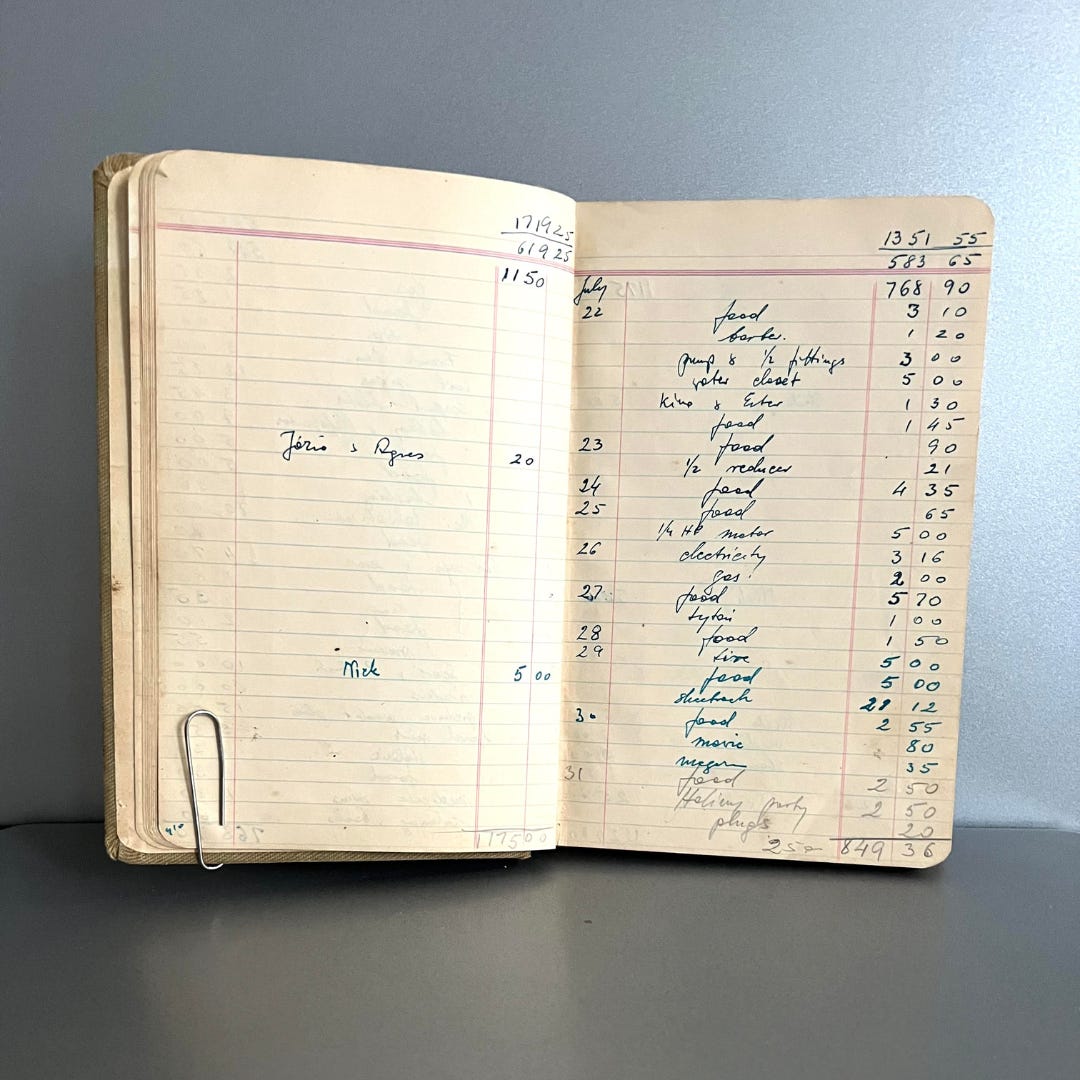 1719 25
619 25
1150
Józio & Agnes 20
Nick 5 00
1750 0
1351 55
583 65
July 768 90
22 food 3 10
barber. 1 20
pump & 1/2 fittings 3 00
water closet 5 00
Kino & Ester 1 30
food 1 45
23 food 90
1/2 reducer 21
24 food 4 35
25 food 65
1/4 HP motor 5 00
26 electricity 3 16
gas 2 00
27 food 5 70
1 00
28 food 1 50
29 tire 5 00
food 5 00
12
30 food 2 55
movie 80
35
31 food 2 50
party 2 50
plugs 20
250 849 36